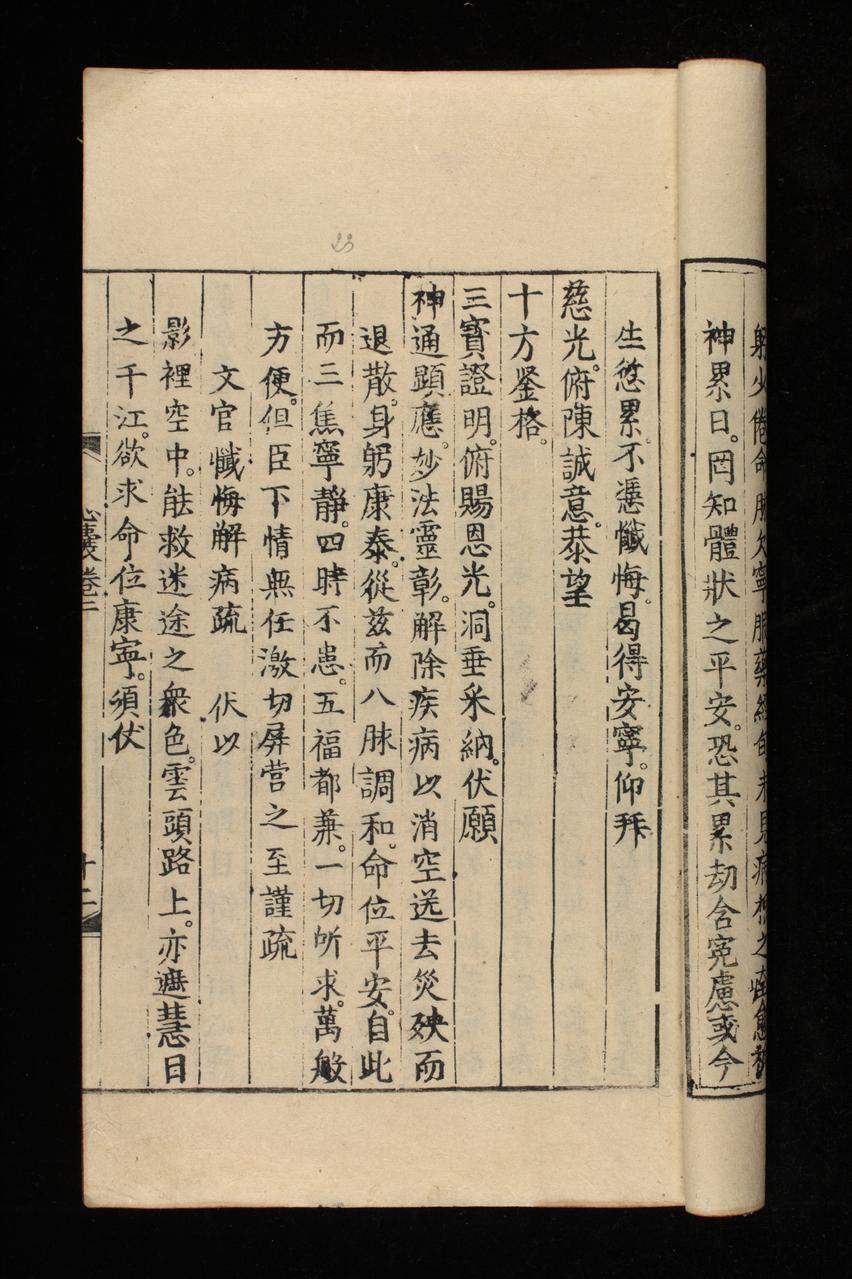 躬少倦命脉欠寧服藥經旬未見病想之
神累日。罔知體狀之平安。恐其累劫含寃慮或今
生愆累。不憑懺悔。曷得安寧。仰拜
慈光。俯陳誠意。恭望
十方鉴格。
三寳證明。俯賜恩光。洞垂采納。伏願
神通顕應。妙法靈彰。解除疾病以消空送去災殃而
退散。身躬康泰。從兹而八脉調和。命位平安。自此
而三焦寧静。四時不患。五福都兼。一切所求。萬般
方便。但臣下情無任激切屏营之至謹疏
文官懺悔解病疏 伏以
影裡空中。能救迷途之衆色。雲頭路上。亦遮慧日
之千江。欲求命位康寧。須伏
心囊卷二 十二
23